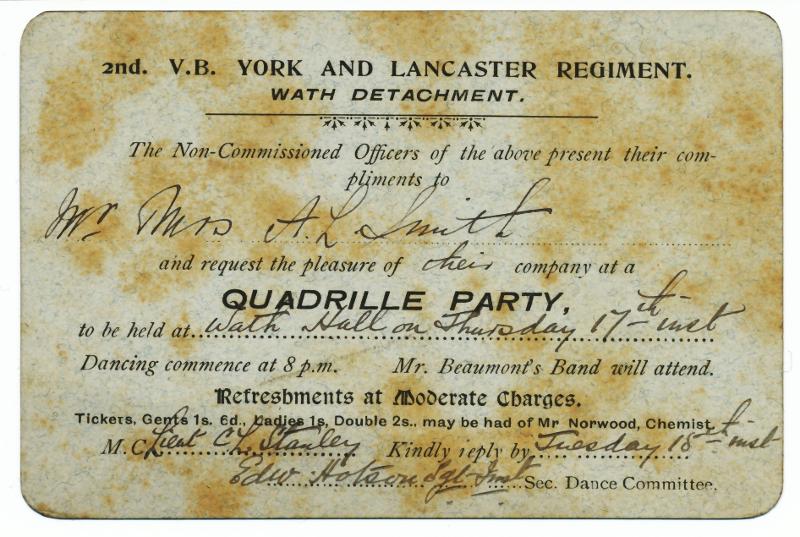 2nd. V.B. YORK AND LANCASTER REGIMENT.
WATH DETACHMENT.
The Non-Commissioned Officers of the above present their com-
pliments to
Mr Mrs A. L Smith
and request the pleasure of their company at a
QUADRILLE PARTY,
to be held at Wath Hall on Thursday 17th inst
Dancing commence at 8 p.m. Mr. Beaumont's Band will attend.
Refreshments at Moderate Charges.
Tickets, Gents 1s. 6d., Ladies 1s, Double 2s., may be had of Mr Norwood, Chemist.
M.C. Lieut C.L. Stanley Kindly reply by Tuesday 15th inst
Edw Hotson Sgt Inst Sec. Dance Committee.